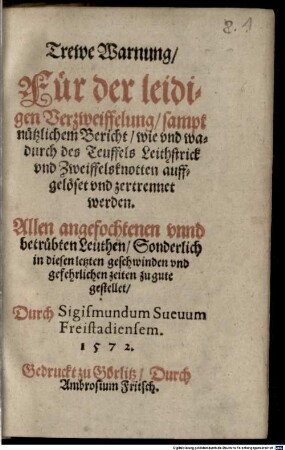 Trewe Warnung/
Für der leidi-
gen Verzweiffelung/ sampt
nützlichem Bericht/ wie vnd wa-
durch des Teuffels Leithstrick
vnd Zweiffelsknotten auff-
gelöset vnd zertrennet
werden.
Allen angefochtenen vnnd
betrübten Leuthen/ Sonderlich
in diesen letzten geschwinden vnd
gefehrlichen zeiten zu gute
gestellet/
Durch Sigismundum Sueuum
Freistadiensem.
1572.
Gedruckt zu Görlitz/ Durch
Ambrosium Fritsch.